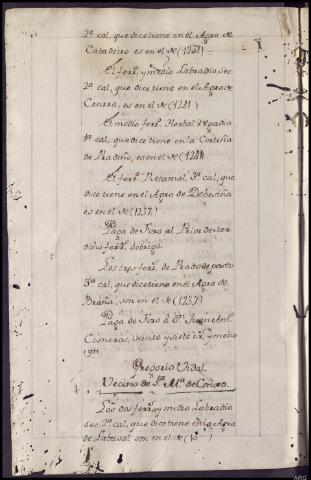 2ª cal, que dice tiene en el Agro de
Cabadoiro es en el Ve (1232)
El ferrº, y medio Labradio, sec
2ª cal, que dice tiene en el Agro de
Cernra, es en el Ve (1211)
El medio ferº. Herbal Regadio
1ª cal, que dice tiene en la Cortiña
de Pradiño, es en el Ve (1211)
El ferrº. Retamal, 3ª cal, que
dice tiene en el Agro de Debesiña
es en el Ve (1237)
Paga de Foro al Prior de Sar
ocho ferrº. de trigo.
Los tres ferrº. de Prado de pasto
3ª cal, que dice tiene en el Agro de
Braña, son en el Ve (1232)
Paga de Foro à Dn. Juan Antº.
Cisneros, veinte y siete rrˢ. y medio
Gregorio Vidal,
Vecino de Sta. Mª. de Conxo.
Los dos ferrº. y medio Labradio
sec. 2ª cal, que dice tiene en la Agra
de Labasal, son en el Ve (15 )
ARG